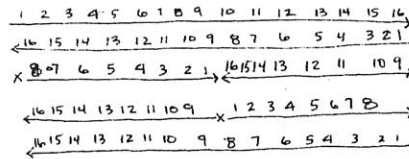 1 2 3 4 5 6 7 8 9 10 11 12 13 14 15 16
16 15 14 13 12 11 10 9 8 7 6 5 4 3 2 1
x 8 7 6 5 4 3 2 1 16 15 14 13 12 11 10 9
16 15 14 13 12 11 10 9 x 1 2 3 4 5 6 7 8
16 15 14 13 12 11 10 9 8 7 6 5 4 3 2 1